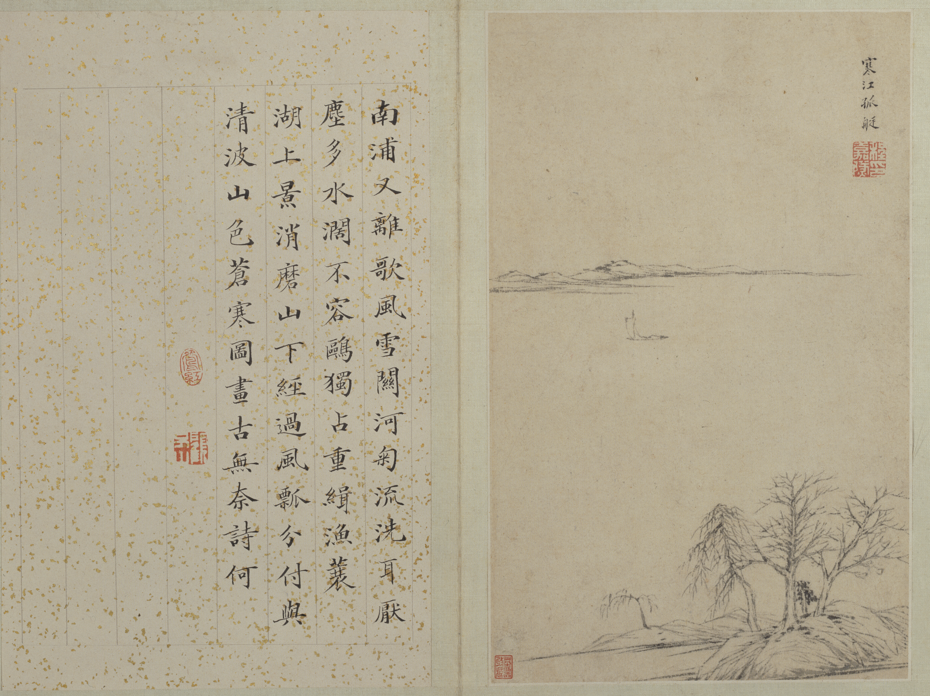 寒江孤艇
南浦又離歌風雪關河匊流洗耳厭
塵多水濶不容鷗獨占重緝漁蓑
湖上景消磨山下經過風瓢分付與
清波山色蒼寒圖畫古無奈詩何